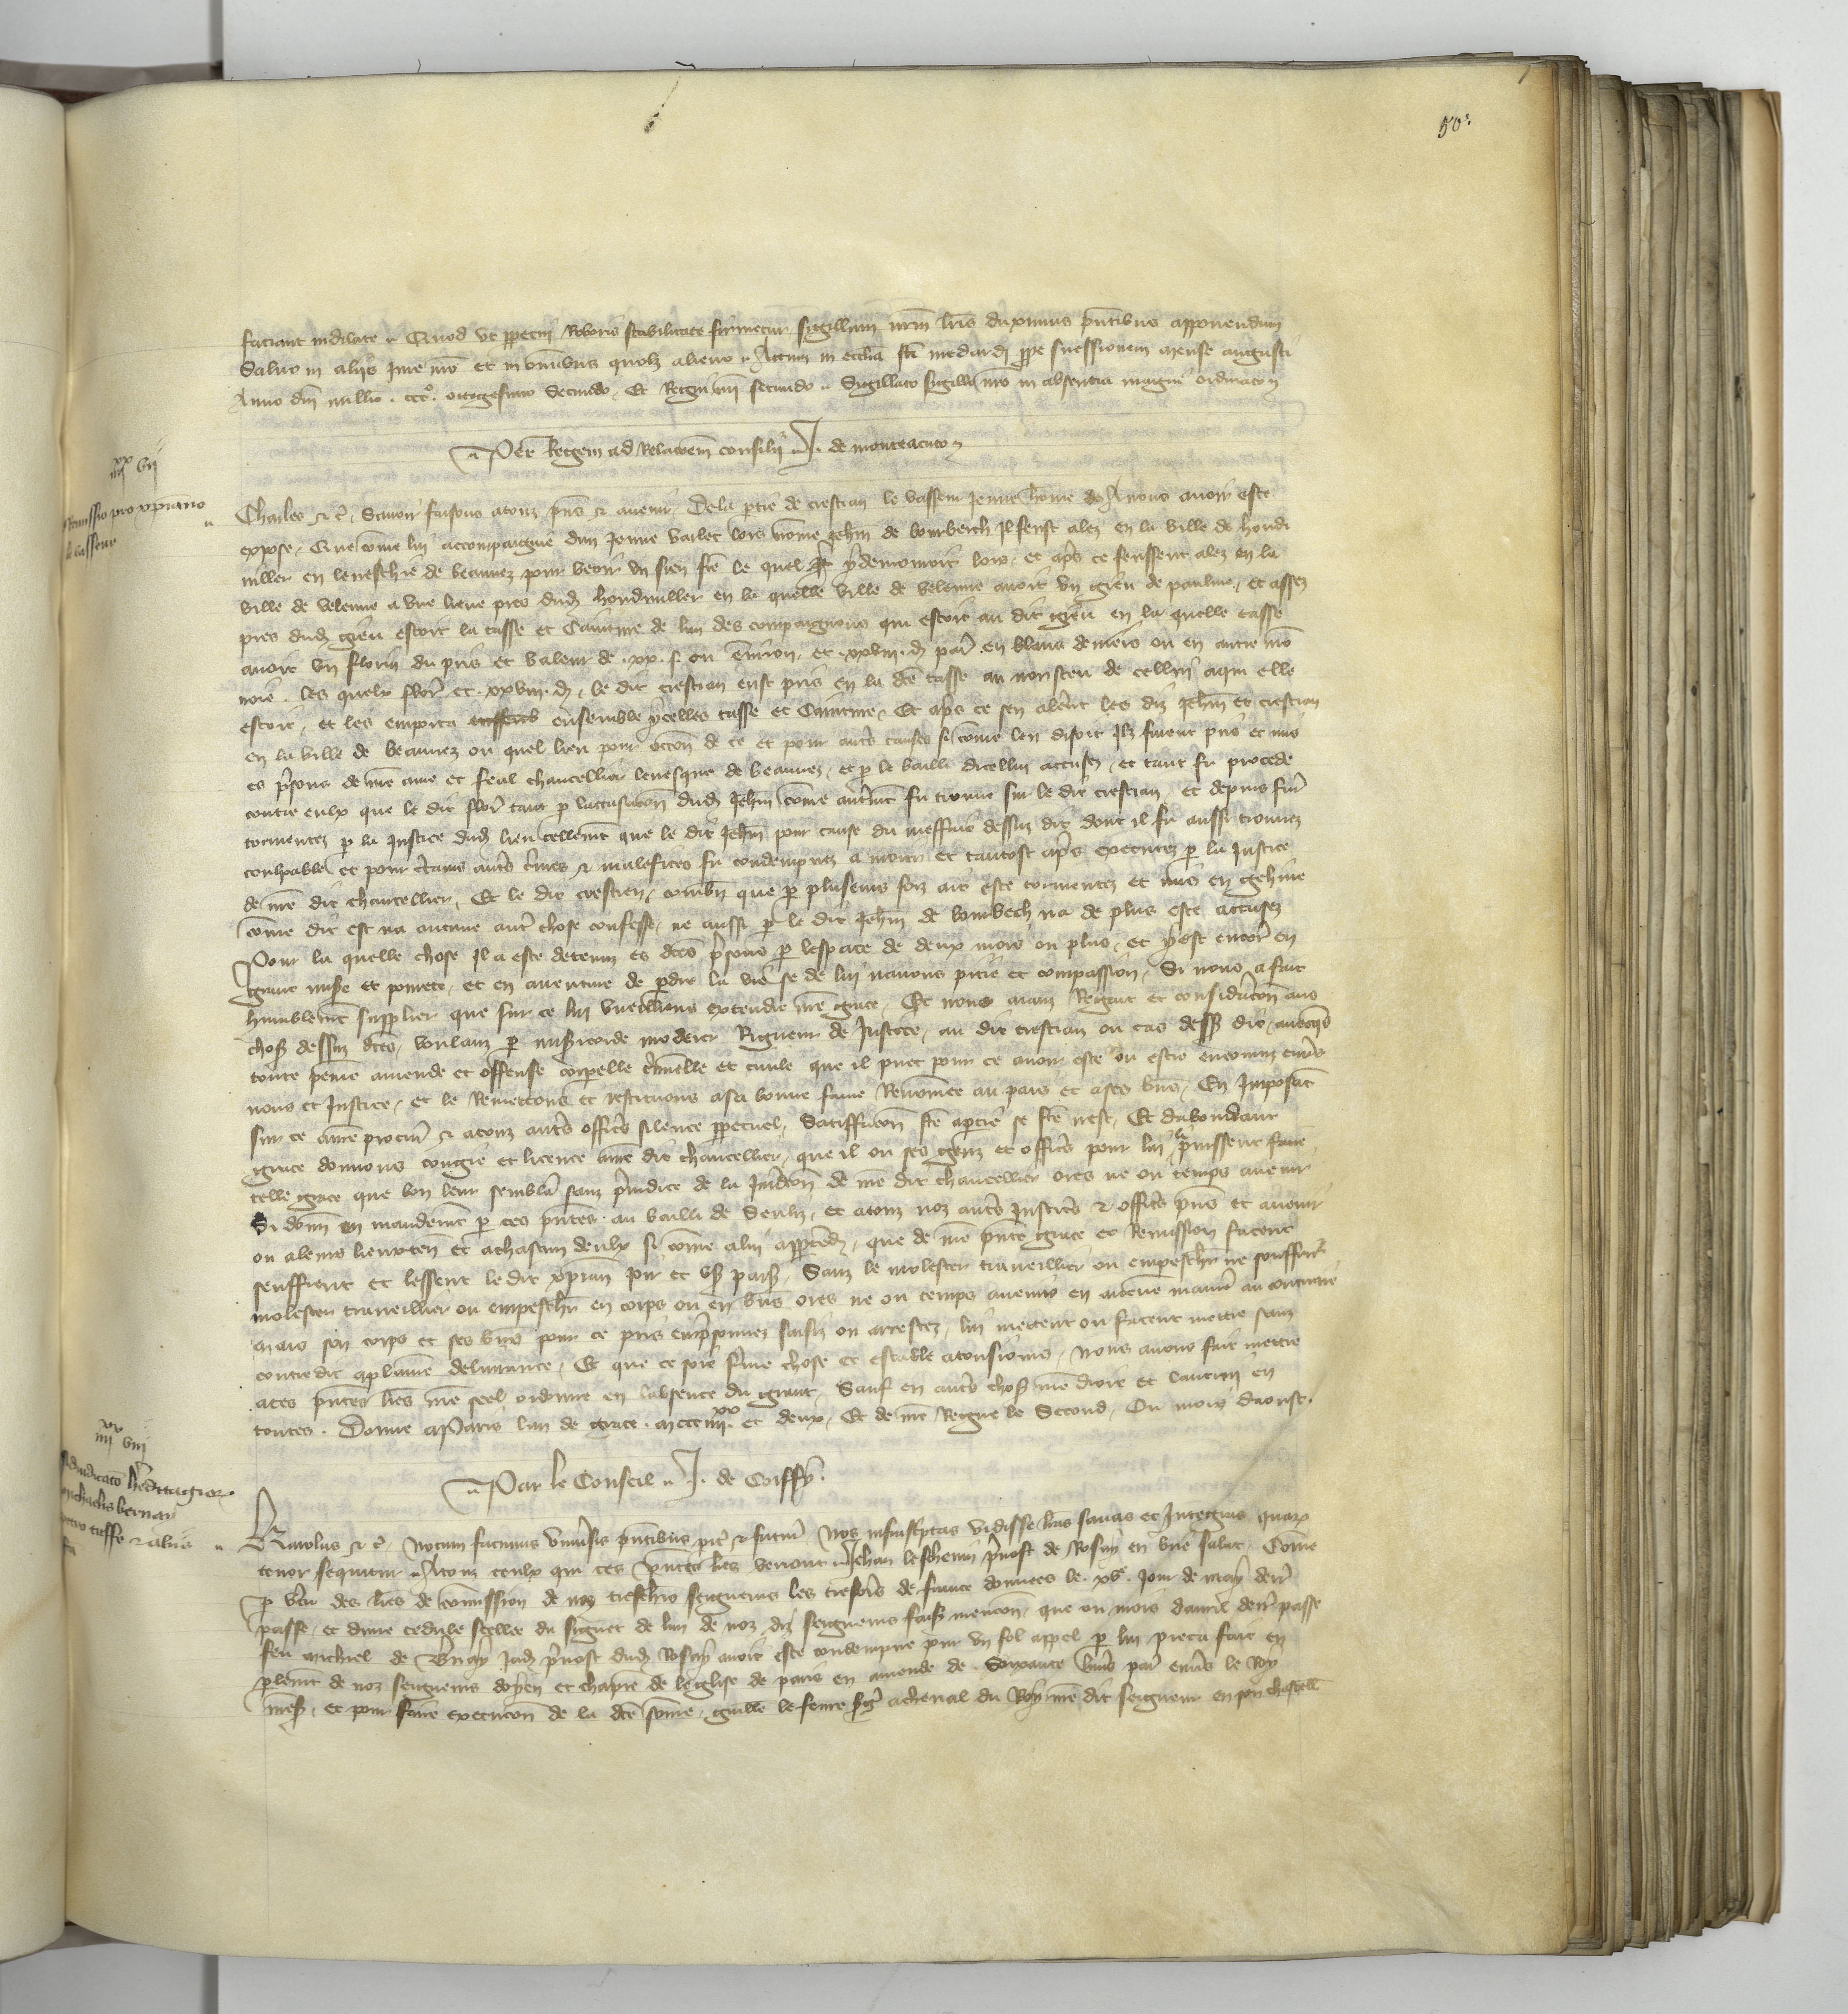 50.
faciant indilate. Quod ut ppetui Roboris stabilitate firmetur sigillum nrm lris duximus pntibus apponendum
Salvo in aliis Jure nro et in omibus quolz alieno. Actum in ecclia sti medardi ppe suessionem mense augusti
Anno dni millio. ccco. octogesimo Secundo, Et Regni nri secundo. Sigillato sigillo nro in absencia magni ordinato
Per Regem ad Relacoem consilii. J. de monteacuto
iiii xx vii
Remissio pro xpiano
le vasseur
Charles &c. Savoir faisons a touz pns & avenir, De la ptie de crestian le vasseur Jeune home A nous avoir este
expose, Que come lui acompaignie dun Jeune varlet lors nome Jehan de bomberch Il feust alez en la ville de hondi
uiller en leveschie de beauvez pour veoir un sien frere le quel y demouroit lors, et apres ce feussent alez en la
ville de velenne a une lieue pres dud hondiuiller en la quelle ville de velenne avoit un gieu de paulme, et assez
pres dud gieu estoit la tasse et Cainture de lun des compaignons qui estoit au dit gieu en la quelle tasse
avoit un florin du pris et valeur de .xx. s. ou environ, et .xxviii. d. par. en blans deniers ou en autre mo
noie. les quelx flor. et .xxviii. d., le dit crestian eust pris en la dte tasse au non sceu de cellui a qui elle
estoit, et les emporta ensemble ycelles tasse et Cainture, Et apres ce sen alerent les diz Jehan et crestian
en la ville de beauvez ou quel lieu pour occon de ce et pour autres causes si come len disoit Ilz furent pris et mis
es prisons de nre ame et feal chancellier levesque de beauvez, et p le bailli dicellui accusez, et tant fu procede
contre eulx que le dit flor. tant p laccusacon dud Jehan come autrement fu trouve sur le dit crestian, et depuis furent
tormentez p la Justice dud lieu tellement que le dit Jehan pour cause du meffait dessuz dit dont il fu aussi trouvez
coulpable et pour certains autres crimes & malefices fu condempnez a mourir et tantost apres executez p la Justice
de nre dit chancellier, Et le dit crestien, combien que p plusieurs foiz ait este tormentez et mis en gehine
come dit est na aucune autre chose confesse, ne aussi p le dit Jehan de bomberch na de plus este accusez
Pour la quelle chose Il a este detenuz es dtes prisons p lespace de deux mois ou plus, et y est encores en
grant misere et povrete, et en aventure de pdre la vie se de lui navons pitie et compassion, Si nous a fait
humblement supplier que sur ce lui vueillions extendre nre grace, Et nous aians Regart et consideracon aus
choses dessuz dtes, voulans p misericorde moderer Rigueur de Justice, au dit crestian ou cas dessus dit, avons quicte
toute peine amende et offense corporelle criminelle et civile que il puet pour ce avoir este ou estre encouruz envers
nous et Justice, et le Remettons et restituons a sa bonne fame Renommee au pais et a ses biens, En Imposant
sur ce a nre procureur & a touz autres officiers silence ppetuel, Satiffacon faite a ptie se faite nest, Et dabondant
grace donnons congie et licence a nre dit chancellier, que il ou ses gens et officiers pour lui puissent faire
telle grace que bon leur semblera sanz preiudice de la Juridicon de nre dit chancellier ores ne ou temps avenir
Si donnons en mandement p ces pntes au bailli de Senliz, et a touz noz autres Justiciers & officiers pns et avenir
ou a leurs lieuxten. et a chascun deulx si come a lui appartendra, que de nre pnte grace et Remission facent
seuffrent et lessent le dit xpian Joir et user paisiblement, Sanz le molester traveillier ou empescher ne souffrir
molester traveillier ou empescher en corps ou en biens ores ne ou temps avenir en aucune maniere au contraire
mais son corps et ses biens pour ce pris emprisonnez saisiz ou arrestez, lui mettent ou facent mettre sanz
contredit a plaine delivrance, Et que ce soit ferme chose et estable a tousiours, Nous avons fait mettre
a ces pntes lres nre seel ordonne en labsence du grant, Sauf en autres choses nre droit et lautrui en
toutes. Donne a Paris lan de grace. mccc iiii xx et deux, Et de nre Regne le Second, Ou mois daoust.
Par le Conseil. J. de Coiffy.
iiii xx viii
Adiudicato hereditagiorum
michaelis
Karolus &c. Notum facimus universis pntibus pit & futuris Nos infrascriptas vidisse lras sanas et Integras quarum
tenor sequitur. A touz ceulx qui ces pntes lres verront Jehan prevost de Rosoy en brie salut. Come
p vertu des lres de comission de noz treschers seigneurs les tresoriers de france donnees le .xve. Jour de may derr.
passe, et dune cedule seellee du signet de lun de noz diz seigneurs faisant mencon, que ou mois davril derr. passe
feu michiel de Jadiz prevost dud Rosoy avoit este condempne pour un fol appel p lui pieca fait en
plement de noz seigneurs doyen et chapitre de leglise de paris en amende de Soixante livres par. envers le Roy
nres, et pour faire execucon de la dte some, guille le fevre sergent a cheval du Roy nre dit seigneur en son chastell